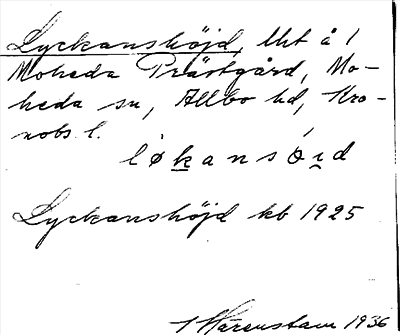 Lyckanshöjd, lht å 1
Moheda Prästgård, Mo-
heda sn, Allbo hd, Kro-
nobs l.
løkansóid
Lyckanshöjd kb 1925
Härenstam 1936